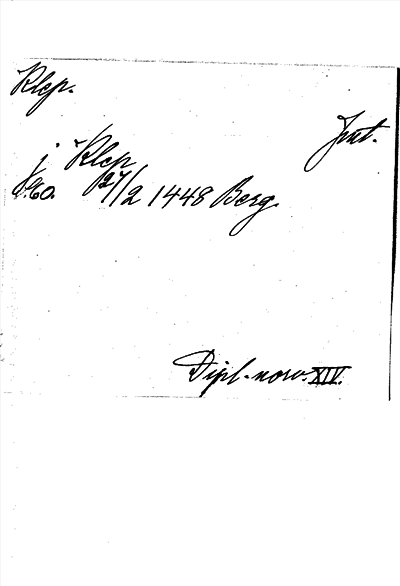 Klep.
Jnt.
j Klep
S. 60. 27/2 1448 Berg.
Dipl. norv. XIV.